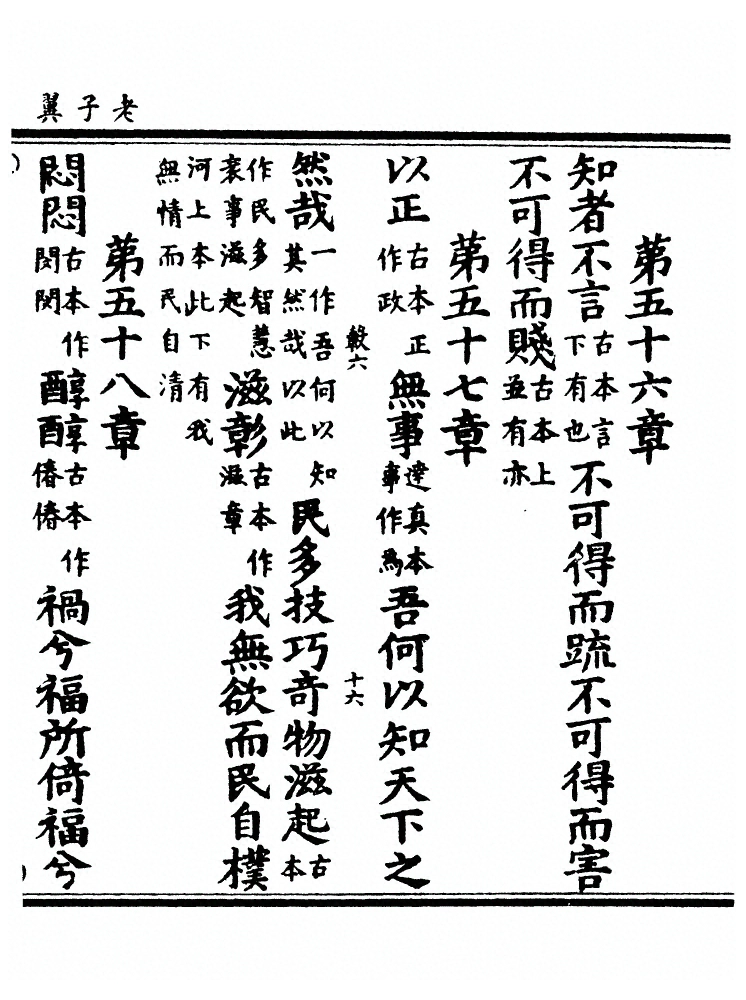 老子翼
第五十六章
知者不言古本言下有也不可得而疏不可得而害
不可得而賤古本上並有亦
第五十七章
以正古本正作政無事達真本事作爲吾何以知天下之
六
十六
然哉一作吾何以知其然哉以此民多技巧奇物滋起古本
作民多智慧衺事滋起滋彰古本作滋章我無欲而民自樸
河上本此下有我無情而民自清
第五十八章
悶悶古本作閔閔醇醇古本作偆偆禍兮福所倚福兮